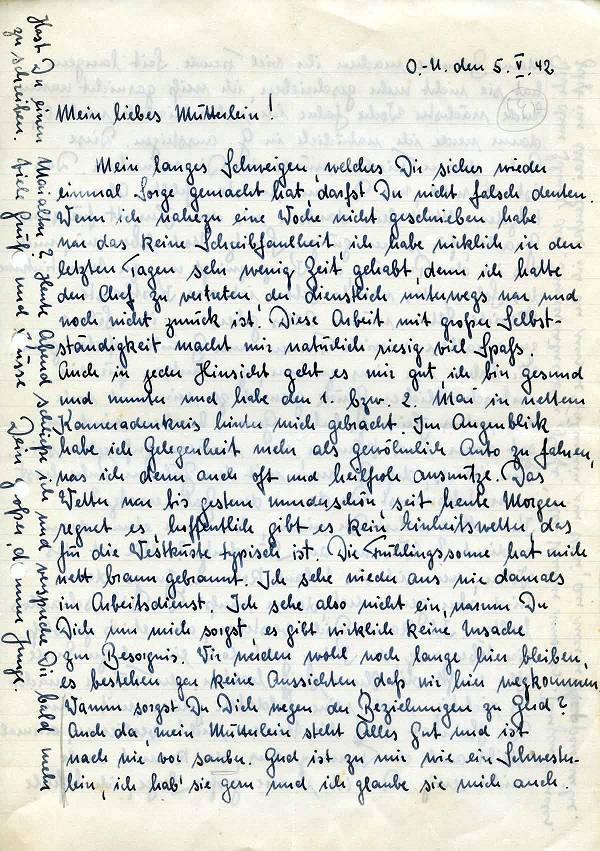 O.-U. den 5. V. 42
Mein liebes Mütterlein!
Mein langes Schweigen, welches Dir sicher wieder
einmal Sorge gemacht hat, darfst Du nicht falsch deuten.
Wenn ich nahezu eine Woche nicht geschrieben habe
war das keine Schreibfaulheit, ich habe wirklich in den
letzten Tagen sehr wenig Zeit gehabt, denn ich hatte
den Chef zu vertreten, der dienstlich unterwegs war und
noch nicht zurück ist. Diese Arbeit mit großer Selbst-
ständigkeit macht mir natürlich riesig viel Spaß.
Auch in jeder Hinsicht geht es mir gut, ich bin gesund
und munter und habe den 1. bzw. 2. Mai in nettem
Kameradenkreis hinter mich gebracht. Im Augenblick
habe ich Gelegenheit mehr als gewöhnlich Auto zu fahren,
was ich denn auch oft und heilfroh ausnütze. Das
Wetter war bis gestern wunderschön, seit heute Morgen
regnet es, hoffentlich gibt es kein Einheitswetter, das
für die Westküste typisch ist. Die Frühlingssonne hat mich
nett braun gebrannt. Ich sehe wieder aus wie damals
im Arbeitsdienst. Ich sehe also nicht ein, warum Du
Dich um mich sorgst, es gibt wirklich keine Ursache
zur Besorgnis. Wir werden wohl noch lange hier bleiben,
es bestehen gar keine Aussichten, daß wir hier wegkommen.
Warum sorgst Du Dich wegen der Beziehungen zu Gerd?
Auch da, mein Mütterlein steht Alles Gut und ist
nach wie vor sauber. Gerd ist zu mir wie ein Schwester-
lein, ich hab' sie gern und ich glaube sie mich auch.
Hast Du einen Maialtar? Heute Abend schließe ich und verspreche Dir bald mehr
zu schreiben. Viele Grüße und Küsse Dein großer, dummer Junge.